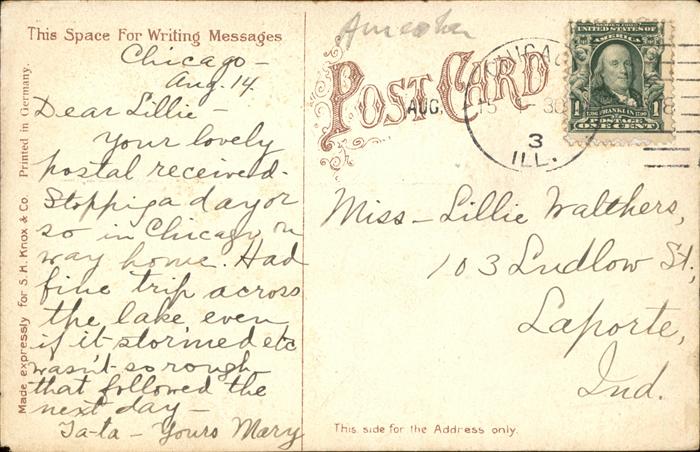 This Space For Writing Messages
Chicago -
Aug. 14.
Dear Lillie -
Your lovely
postal received.
Stoppig a day or
so in Chicago on
way home. Had
fine trip across
the lake even
if it stormed etc
wasn't so rough
that followed the
next day -
Ta-ta - Yours Mary
Made expressly for S. H. Knox & Co. Printed in Germany.
POST CARD
CHICAGO
AUG. 15
3
ILL.
8
SERIES 1902
UNITED STATES OF
AMERICA
FRANKLIN
1 1
POSTAGE
ONE CENT
Miss - Lillie Walthers,
103 Ludlow St,
Laporte,
Ind.
This side for the Address only.